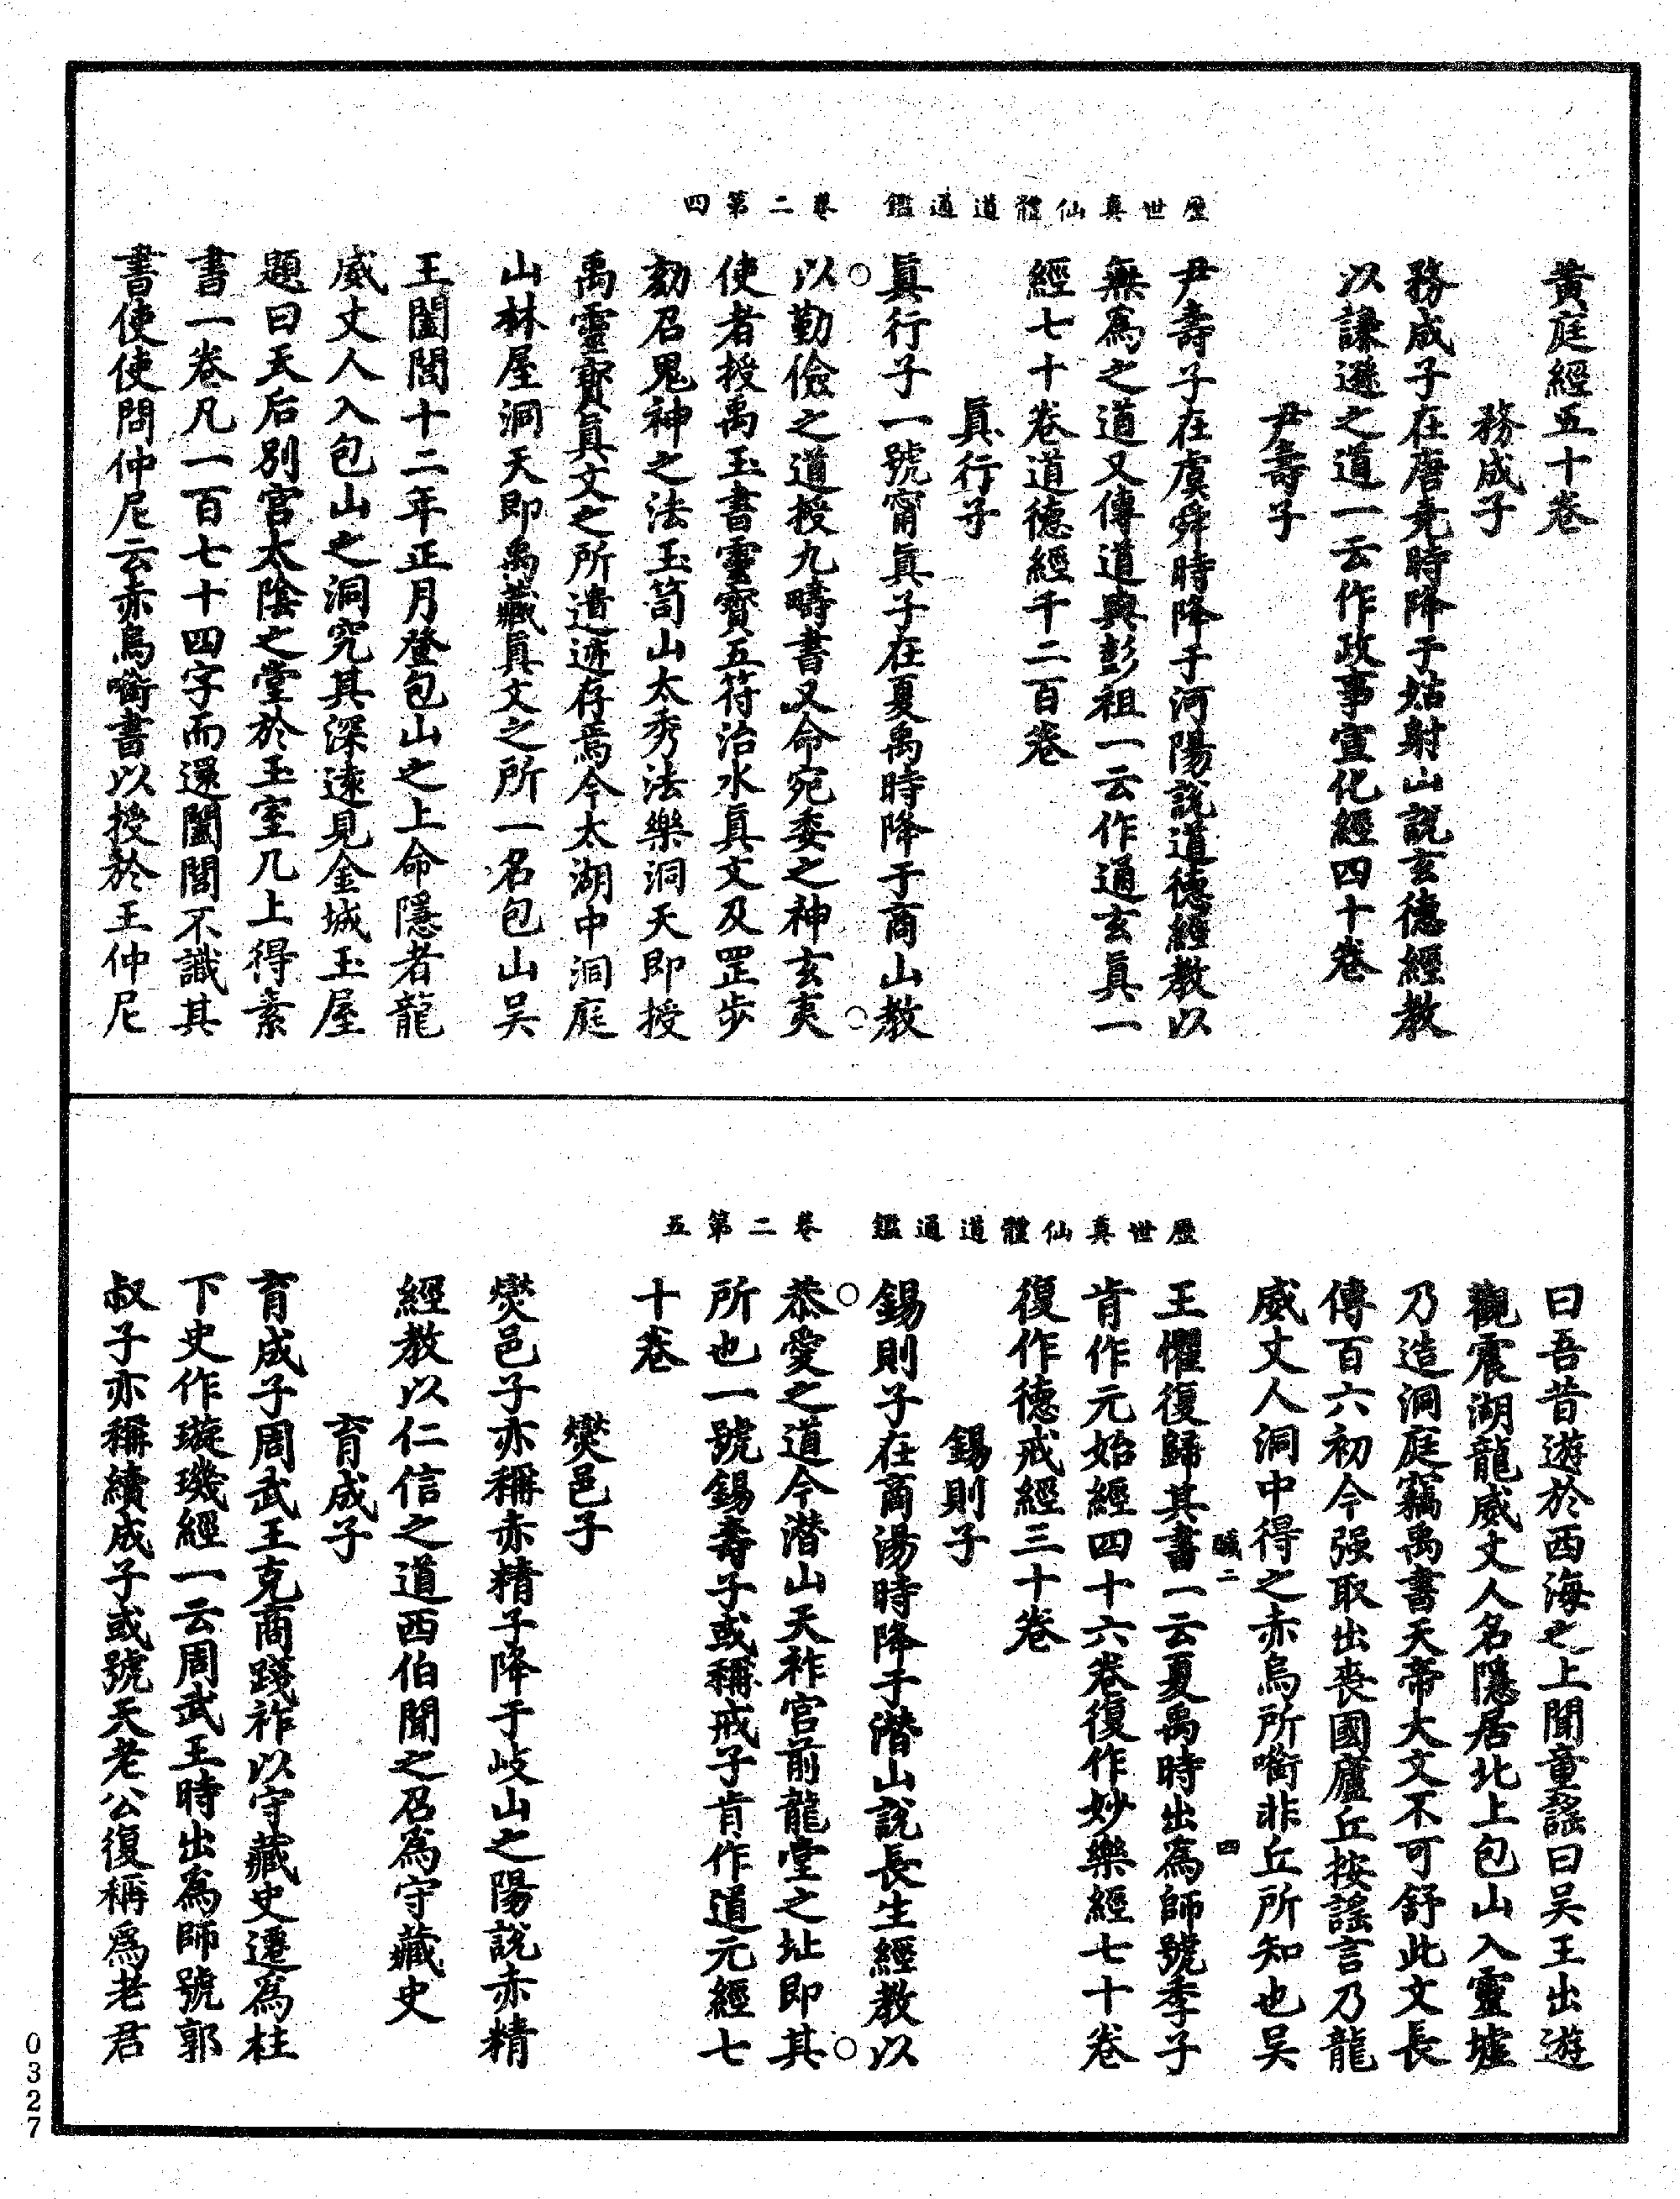 歷世真仙體道通鑑　卷二第四
黃庭經五十卷
務成子
務成子在唐堯時降于姑射山說玄德經教
以謙遜之道一云作政事宣化經四十卷
尹壽子
尹壽子在虞舜時降于河陽說道德經教以
無為之道又傳道與彭祖一云作通玄真一
經七十卷道德經千二百卷
真行子
真行子一號甯真子在夏禹時降于商山教
以勤儉之道授九疇書又命宛委之神玄夷
使者授禹玉書靈寶五符治水真文及罡步
劾召鬼神之法玉笥山太秀法樂洞天即授
禹靈寶真文之所遺迹存焉今太湖中洞庭
山林屋洞天即禹藏真文之所一名包山吳
王闔閭十二年正月登包山之上命隱者龍
威丈人入包山之洞究其深遠見金城玉屋
題曰天后別宮太陰之堂於玉室几上得素
書一卷凡一百七十四字而還闔閭不識其
書使使問仲尼云赤烏銜書以授於王仲尼
歷世真仙體道通鑑　卷二第五
曰吾昔遊於西海之上聞童謠曰吳王出遊
觀震湖龍威丈人名隱居北上包山入靈墟
乃造洞庭竊禹書天帝大文不可舒此文長
傳百六初今强取出喪國廬丘按謠言乃龍
威丈人洞中得之赤烏所銜非丘所知也吳
二　四
王懼復歸其書一云夏禹時出為師號李子
肯作元始經四十六卷復作妙樂經七十卷
復作德戒經三十卷
錫則子
錫則子在商湯時降于潛山說長生經教以
恭愛之道今潛山天祚宮前龍堂之址即其
所也一號錫壽子或稱戒子肯作道元經七
十卷
爕邑子
爕邑子亦稱赤精子降于岐山之陽說赤精
經教以仁信之道西伯聞之召為守藏史
育成子
育成子周武王克商踐祚以守藏史遷為柱
下史作璇璣經一云周武王時出為師號郭
叔子亦稱續成子或號天老公復稱為老君
0327